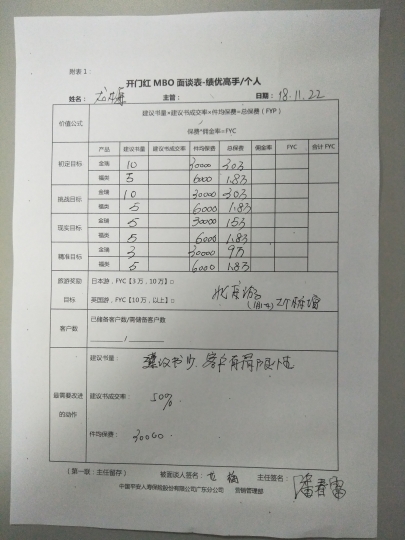 附表1：
开门红 MBO 面谈表-绩优高手/个人
姓名： 主管： 日期：18.11.22
价值公式 建议书量*建议书成交率*件均保费=总保费（FYP）
保费*佣金率=FYC
产品 建议书量 建议书成交率 件均保费 总保费 佣金率 FYC 合计FYC
初定目标 金瑞 10 30000 30万
福类 5 6000 1.8万
挑战目标 金瑞 10 30000 30万
福类 5 6000 1.8万
现实目标 金瑞 5 30000 15万
福类 5 6000 1.8万
精准目标 金瑞 3 30000 9万
福类 5 6000 1.8万
旅游奖励 日本游，FYC【3万，10万】□
目标 英国游，FYC【10万，以上】□
客户数 已储备客户数/需储备客户数
/
建议书量： 建议书少，客户有
最需要改进
的动作
建议书成交率： 50%
件均保费： 30000.
（第一联：主任留存） 被面谈人签名： 主任签名：潘春雷
中国平安人寿保险股份有限公司广东分公司 营销管理部